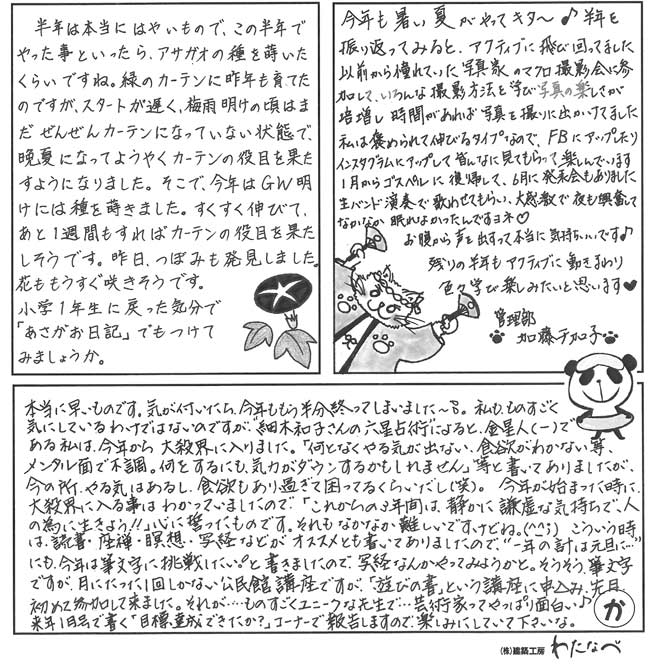 半年は本当にはやいもので、この半年で
やった事といったら、アサガオの種を蒔いた
くらいですね。緑のカーテンに昨年も育てた
のですが、スタートが遅く、梅雨明けの頃はま
だぜんぜんカーテンになっていない状態で、
晩夏になってようやくカーテンの役目を果た
すようになりました。そこで、今年はGW明
けには種を蒔きました。すくすく伸びて、
あと1週間もすればカーテンの役目を果た
しそうです。昨日、つぼみも発見しました。
花ももうすぐ咲きそうです。
小学1年生に戻った気分で
「あさがお日記」でもつけて
みましょうか。
今年も暑い夏がやってキタ〜♪半年を
振り返ってみると、アクティブに飛び回ってました
以前から憧れていた写真家のマクロ撮影会に参
加して、いろんな撮影方法を学び写真の楽しさが
倍増し時間があれば写真を撮りに出かけてました
私は褒められて伸びるタイプなので、FBにアップしたり
インスタグラムにアップして皆んなに見てもらって楽しんでいます
1月からゴスペルに復帰して、6月に発表会もありました
生バンド演奏で歌わせてもらい、大感激で夜も興奮して
なかなか眠れなかったんですヨネ♡
お腹から声を出すって本当に気持ちいいです♪
残りの半年もアクティブに動きまわり
色々学び楽しみたいと思います♥
管理部
加藤千加子
本当に早いものです。気が付いたら、今年ももう半分終ってしまいました〜。私も、ものすごく
気にしているわけではないのですが、"細木和子さんの六星占術"によると、金星人(ー)で
ある私は、今年から大殺界に入りました。「何となくやる気が出ない、食欲がわかない等、
メンタル面で不調。何をするにも、気力がダウンするかもしれません。」等と書いてありましたが、
今の所、やる気はあるし、食欲もあり過ぎて困ってるくらいだし(笑)。今年が始まった時に、
大殺界に入る事はわかっていましたので、「これからの3年間は、静かに謙虚な気持ちで、人
の為に生きよう!!」心に誓ったものです。それもなかなか難しいですけどね。(^^;) こういう時
は、読書・座禅・瞑想・写経などがオススメとも書いてありましたので、"一年の計は元旦に…"
にも、今年は筆文字に挑戦したい。と書きましたので、写経なんかやってみようかと。そうそう、筆文字
ですが、月にたった1回しかない公民館講座ですが、「遊びの書」という講座に申込み、先日、
初めて参加して来ました。それが…ものすごくユニークな先生で…芸術家ってやっぱり面白い♪
来年1月号で書く「目標達成できたか?」コーナーで報告しますので、楽しみにしていて下さいな。
か
(株)建築工房 わたなべ